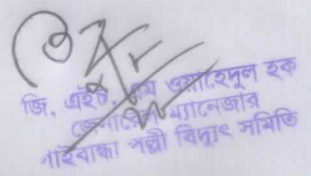 জি, এইচ, এম ওয়াহেদুল হক
জেনারেল ম্যানেজার
গাইবান্ধা পল্লী বিদ্যুৎ সমিতি